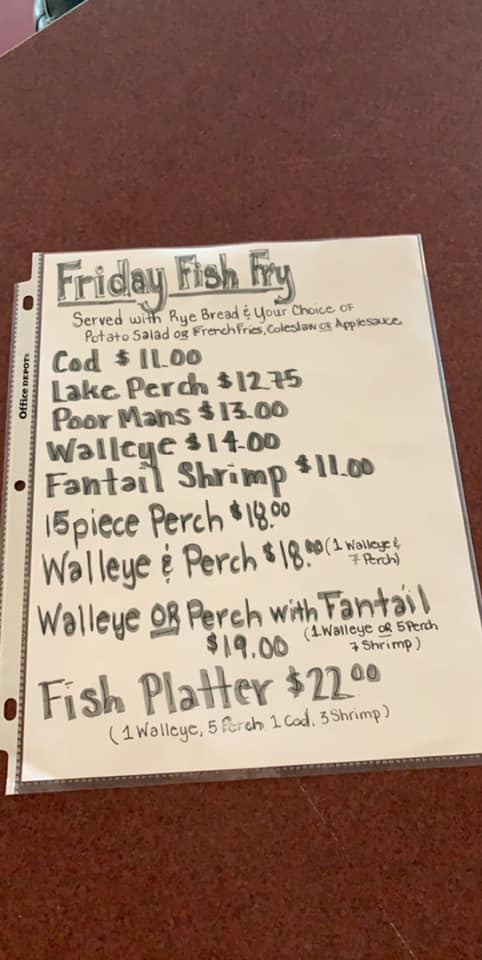 Friday Fish Fry
Served with Rye Bread & Your Choice OF
Potato Salad OR French Fries, Coleslaw OR Applesauce
Cod $11.00
Lake Perch $12.75
Poor Mans $13.00
Walleye $14.00
Fantail Shrimp $11.00
15 piece Perch $18.00
Walleye & Perch $18.00 (1 Walleye &
7 Perch)
Walleye OR Perch with Fantail
$19.00 (1 Walleye OR 5 Perch
7 Shrimp)
Fish Platter $22.00
(1 Walleye, 5 Perch, 1 Cod, 3 Shrimp)
Office DEPOT